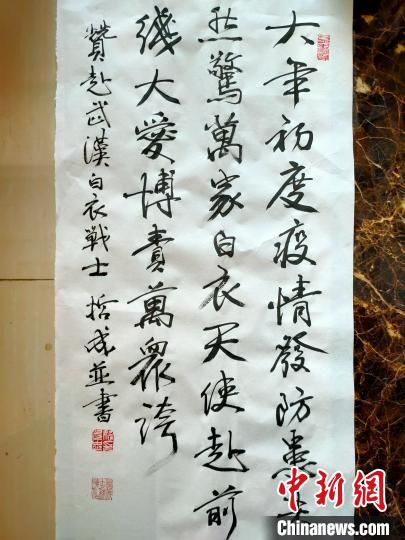 大年初度疫情發防患未
然驚萬家白衣天使赴前
綫大愛博萬眾誇
贊赴武漢白衣戰士 哲成並書
中新网
www.
chinanews.com.cn